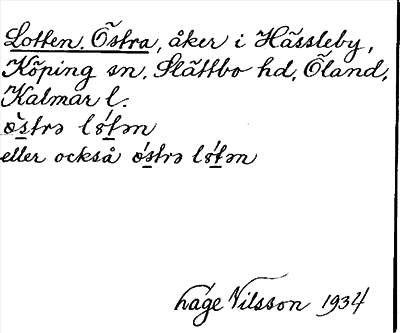 Lotten, Östra, åker i Hässleby,
Köping sn, Slättbo hd, Öland,
Kalmar l.
östrə lötən
eller också östrə lötən
Låge Nilsson 1934